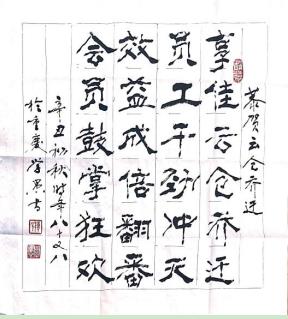 恭贺云仓乔迁
享佳云仓乔迁
员工干劲冲天
效益成倍翻番
会员鼓掌狂欢
辛丑初秋时年八十又八
于重庆学